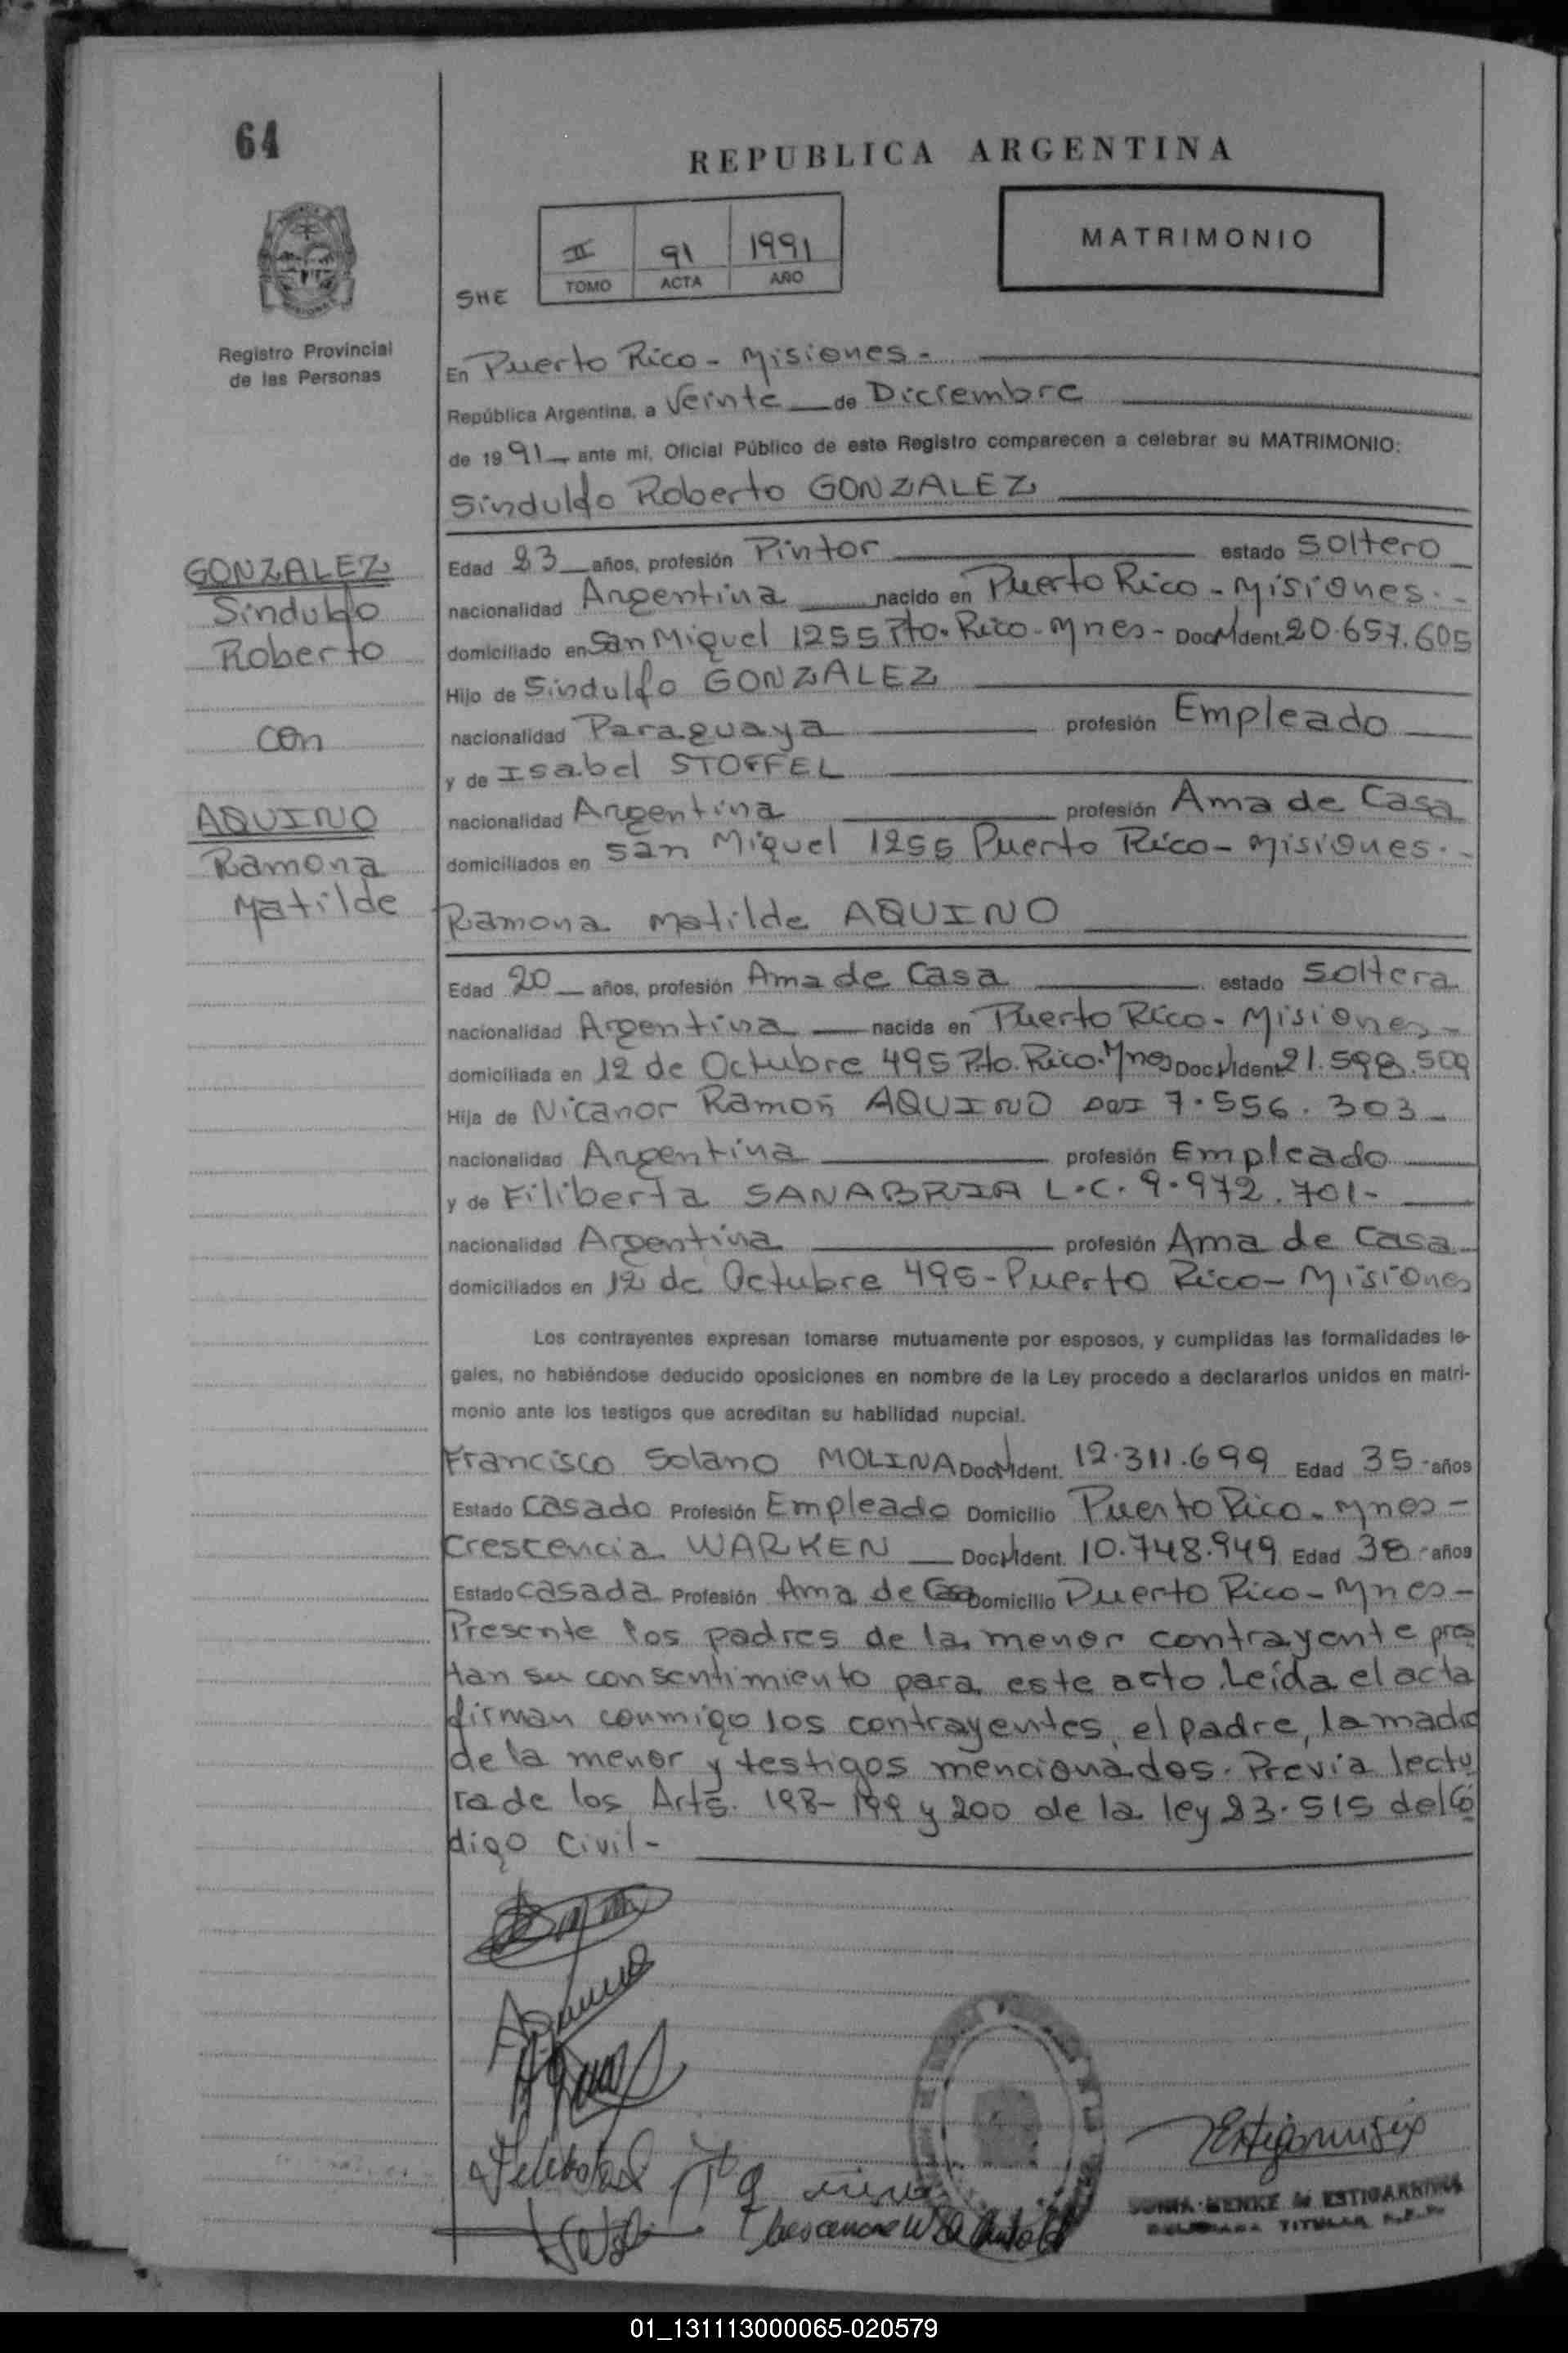 64
REPUBLICA ARGENTINA
II 91 1991
TOMO ACTA AÑO
MATRIMONIO
SHE
Registro Provincial
de las Personas
En Puerto Rico - Misiones -
República Argentina, a Veinte de Diciembre
de 1991 ante mi, Oficial Público de este Registro comparecen a celebrar su MATRIMONIO:
Sindulfo Roberto GONZALEZ
GONZALEZ
Sindulfo
Roberto
con
AQUINO
Ramona
Matilde
Edad 23 años, profesión Pintor estado soltero
nacionalidad Argentina nacido en Puerto Rico - Misiones. -
domiciliado en San Miguel 1255 Pto. Rico - Mnes - Doc. Ident. 20.657.605
Hijo de Sindulfo GONZALEZ
nacionalidad Paraguaya profesión Empleado
y de Isabel STOFFEL
nacionalidad Argentina profesión Ama de Casa
domiciliados en San Miguel 1255 Puerto Rico - Misiones. -
Ramona Matilde AQUINO
Edad 20 años, profesión Ama de Casa estado soltera
nacionalidad Argentina nacida en Puerto Rico - Misiones -
domiciliada en 12 de Octubre 495 Pto. Rico. Mnes Doc. Ident. 21.598.509
Hija de Nicanor Ramón AQUINO DNI 7.556.303 -
nacionalidad Argentina profesión Empleado
y de Filiberta SANABRIA L.C. 9.972.701 -
nacionalidad Argentina profesión Ama de Casa
domiciliados en 12 de Octubre 495 - Puerto Rico - Misiones
Los contrayentes expresan tomarse mutuamente por esposos, y cumplidas las formalidades le-
gales, no habiéndose deducido oposiciones en nombre de la Ley procedo a declararlos unidos en matri-
monio ante los testigos que acreditan su habilidad nupcial.
Francisco Solano MOLINA Doc. Ident. 12.311.699 Edad 35 años
Estado Casado Profesión Empleado Domicilio Puerto Rico - Mnes -
Crescencia WARKEN Doc. Ident. 10.748.949 Edad 38 años
Estado Casada Profesión Ama de Casa Domicilio Puerto Rico - Mnes -
Presente los padres de la menor contrayente pres
tan su consentimiento para este acto. Leída el acta
firman conmigo los contrayentes, el padre, la madre
de la menor y testigos mencionados. Previa lectu
ra de los Arts. 198 - 199 y 200 de la ley 23.515 del Có
digo Civil -
SONIA MENKE de ESTIGARRIBIA
TITULAR
01_131113000065-020579